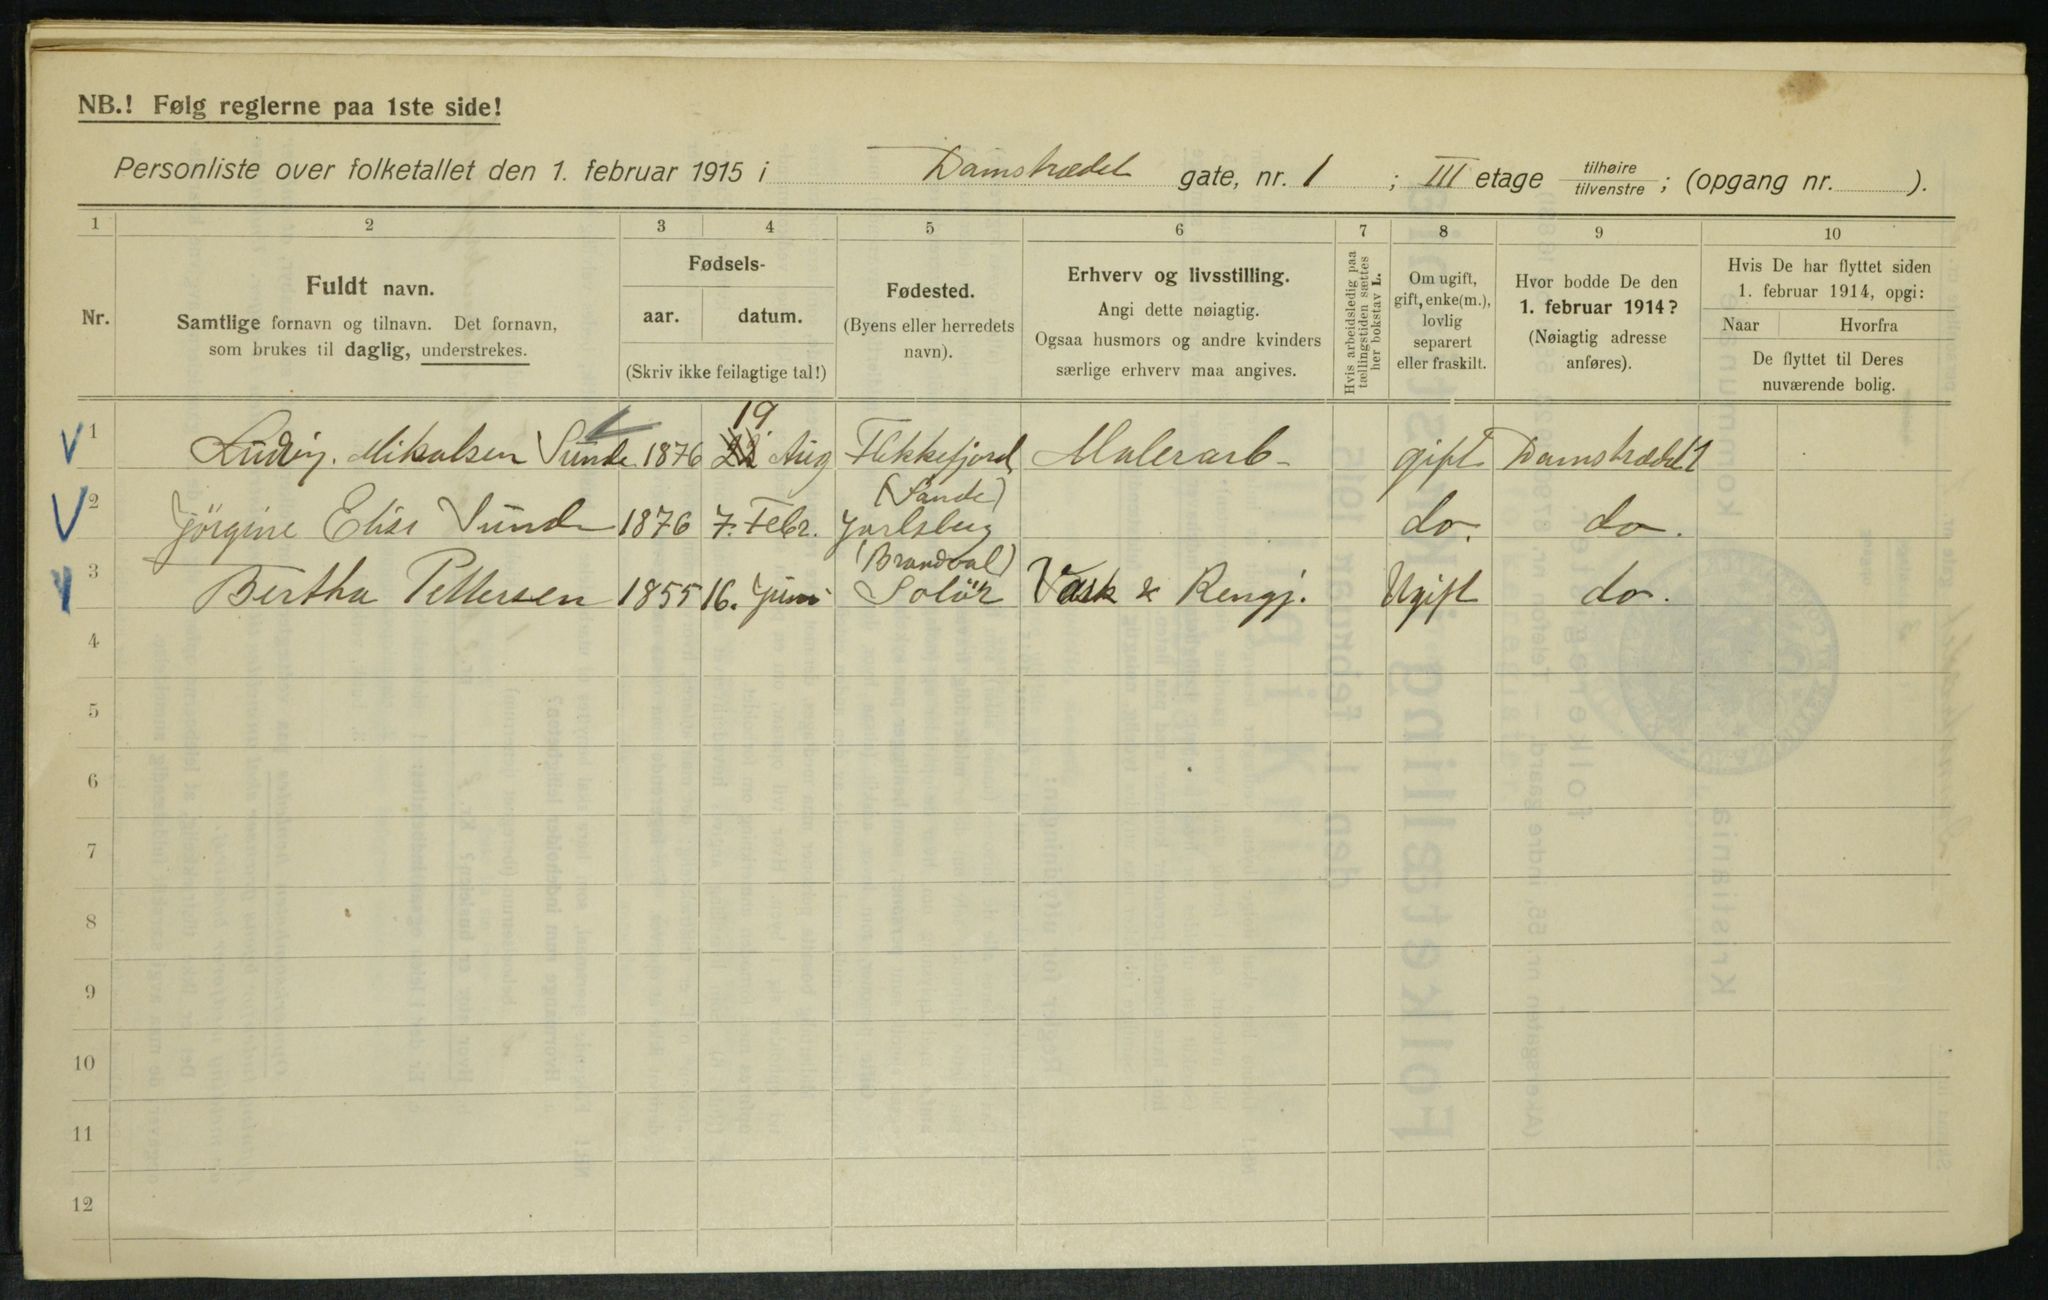 NB.! Følg reglerne paa 1ste side!
Personliste over folketallet den 1. februar 1915 i Damstrædet gate, nr. 1 ; III etage tilhøire tilvenstre ; (opgang nr. ).
1 2 3 4 5 6 7 8 9 10
Nr.
Fuldt navn.
Samtlige fornavn og tilnavn. Det fornavn,
som brukes til daglig, understrekes.
Fødsels-
aar. datum.
(Skriv ikke feilagtige tal!)
Fødested.
(Byens eller herredets
navn).
Erhverv og livsstilling.
Angi dette nøiagtig.
Ogsaa husmors og andre kvinders
særlige erhverv maa angives.
Hvis arbeidsledig paa
tællingstiden sættes
her bokstav L.
Om ugift,
gift, enke(m.),
lovlig
separert
eller fraskilt.
Hvor bodde De den
1. februar 1914?
(Nøiagtig adresse
anføres).
Hvis De har flyttet siden
1. februar 1914, opgi:
Naar Hvorfra
De flyttet til Deres
nuværende bolig.
19
1 Ludvig Mikalsen Sunde 1876 22 Aug Flekkefjord Malerarb- gift Damstrædet 1
(Sande)
2 Jörgine Elise Sunde 1876 7. Febr. Jarlsberg do. do.
(Brandval)
3 Bertha Pettersen 1855 16. Juni Solör Vask & Rengj. Ugift do.
4
5
6
7
8
9
10
11
12